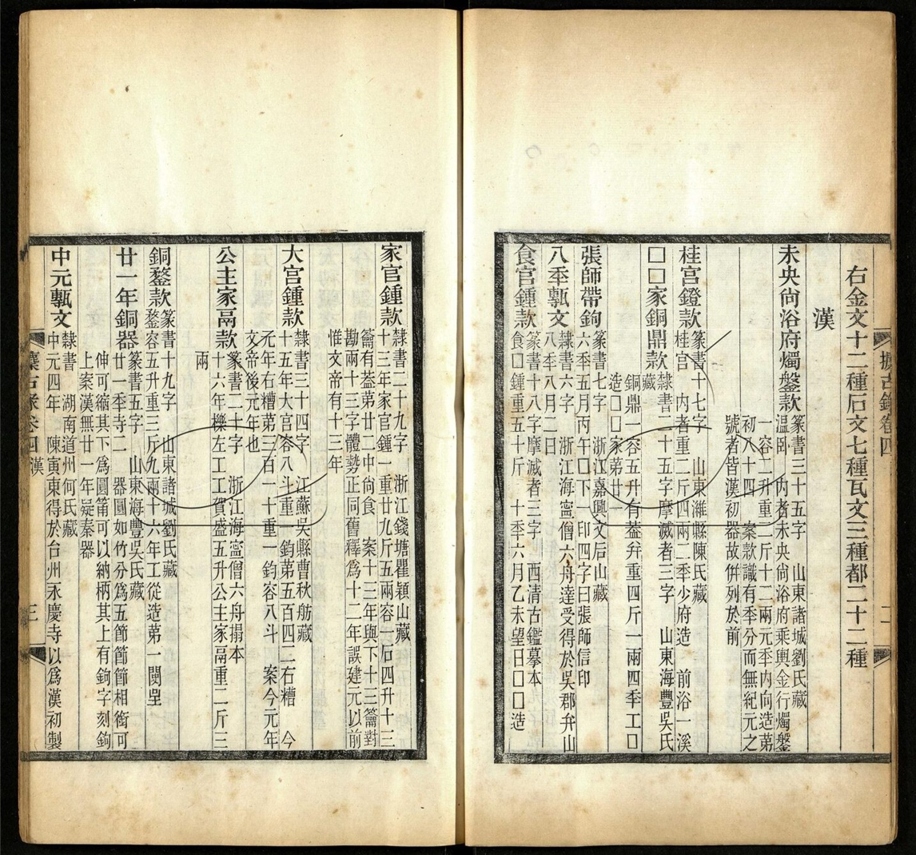 右金文十二種石文七種瓦文三種都二十二種
漢
未央尚浴府燭鎜款
篆書三十五字　山東諸城劉氏藏
溫卧　內者未央尚浴府乘輿金行燭鎜
一容二升重二斤十二兩元季內向造第
初八十四　案款識有季分而無紀元之
號者皆漢初器故併列於前
桂宫鐙款
篆書十七字　山東濰縣陳氏藏
桂宫　內者重二斤四兩二季少府造　前浴一溪
□□家銅鼎款
隸書二十五字摩滅者三字　山東海豐吳氏
藏
銅鼎一容五升有蓋弁重四斤一兩四季工□
造□□家第廿
張師帶鉤
篆書七字　浙江嘉興文后山藏
六季五月丙午□下四字曰張師信印
八季瓡文
隸書六字　浙江海寍僧六舟達受得於吳郡弁山
八季八月二日
食官鍾款
篆書十八字摩滅者三字　西清古鑑摹本
食□鍾重五十斤　十季六月乙未望日□□造
家官鍾款
隸書二十九字　浙江錢塘瞿穎山藏
十三年家官鍾一重廿九斤五兩容一石四升十三
籥有蓋第廿二中尚食　案十三年與下十三籥對
勘兩十三字體勢正同舊釋爲十二年誤建元以前
惟文帝有十三年
大官鍾款
隸書三十四字　江蘇吳縣曹秋舫藏
十五年大官容八斗重一鈞第五百四二右糟　今
元年右糟第三百一十重一鈞容八斗　案今元年
文帝後元年也
公主家鬲款
篆書二十字　浙江海寍僧六舟搨本
十六年櫟左工工賀盛五升公主家鬲重二斤三
兩
銅鍪款
篆書十九字　山東諸城劉氏藏
鍪容五升重三斤九兩十六年工從造第一閿里
廿一年銅器
篆書五字　山東海豐吳氏藏
廿一季寺二　器圓如竹分爲五節節節相銜可
伸可縮其下爲圓筩可以納柄其上有鉤字刻鉤
上案漢無廿一年疑秦器
中元甎文
隸書　湖南道州何氏藏
中元四年　陳寅東得於台州永慶寺以爲漢初製
攗古錄卷四　漢
三
攗古錄卷四
二